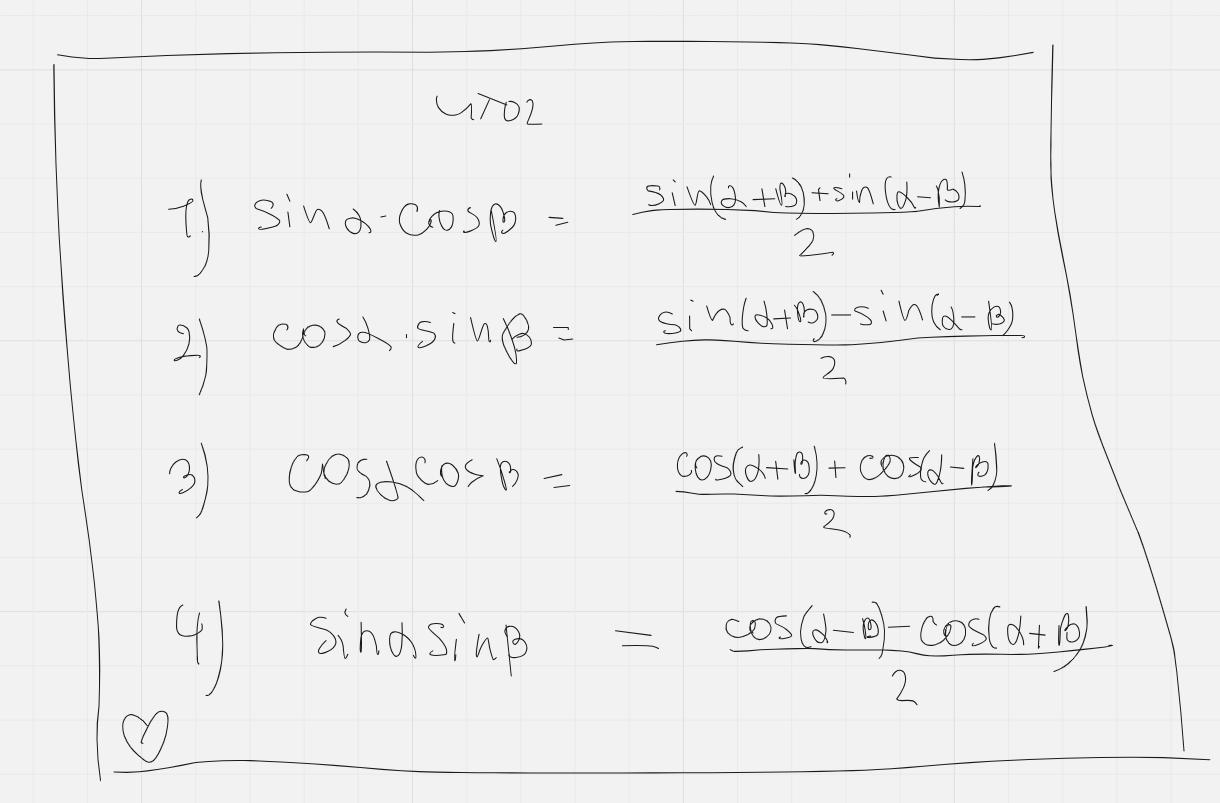 итог
1) sinα·cosβ = (sin(α+β)+sin(α-β))/2
2) cosα·sinβ = (sin(α+β)-sin(α-β))/2
3) cosαcosβ = (cos(α+β)+cos(α-β))/2
4) sinαsinβ = (cos(α-β)-cos(α+β))/2